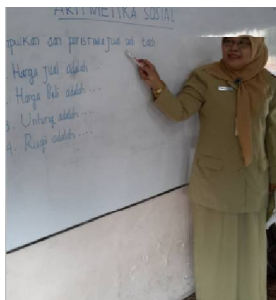 ARITMETIKA SOSIAL
dari peristiwa jual di atas
Harga jual adalah ...
. Harga Beli adalah ...
3. Untung adalah ...
4. Rugi adalah ...